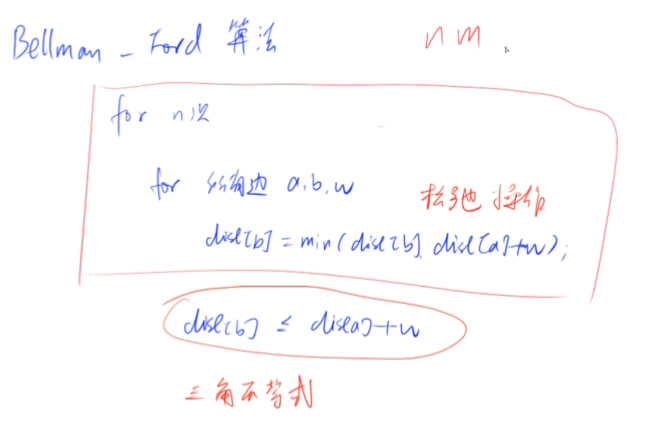 Bellman - Ford 算法 nm
for n次
for 所有边 a,b,w 松弛操作
dist[b] = min(dist[b], dist[a]+w);
dist[b] ≤ dist[a]+w
三角不等式